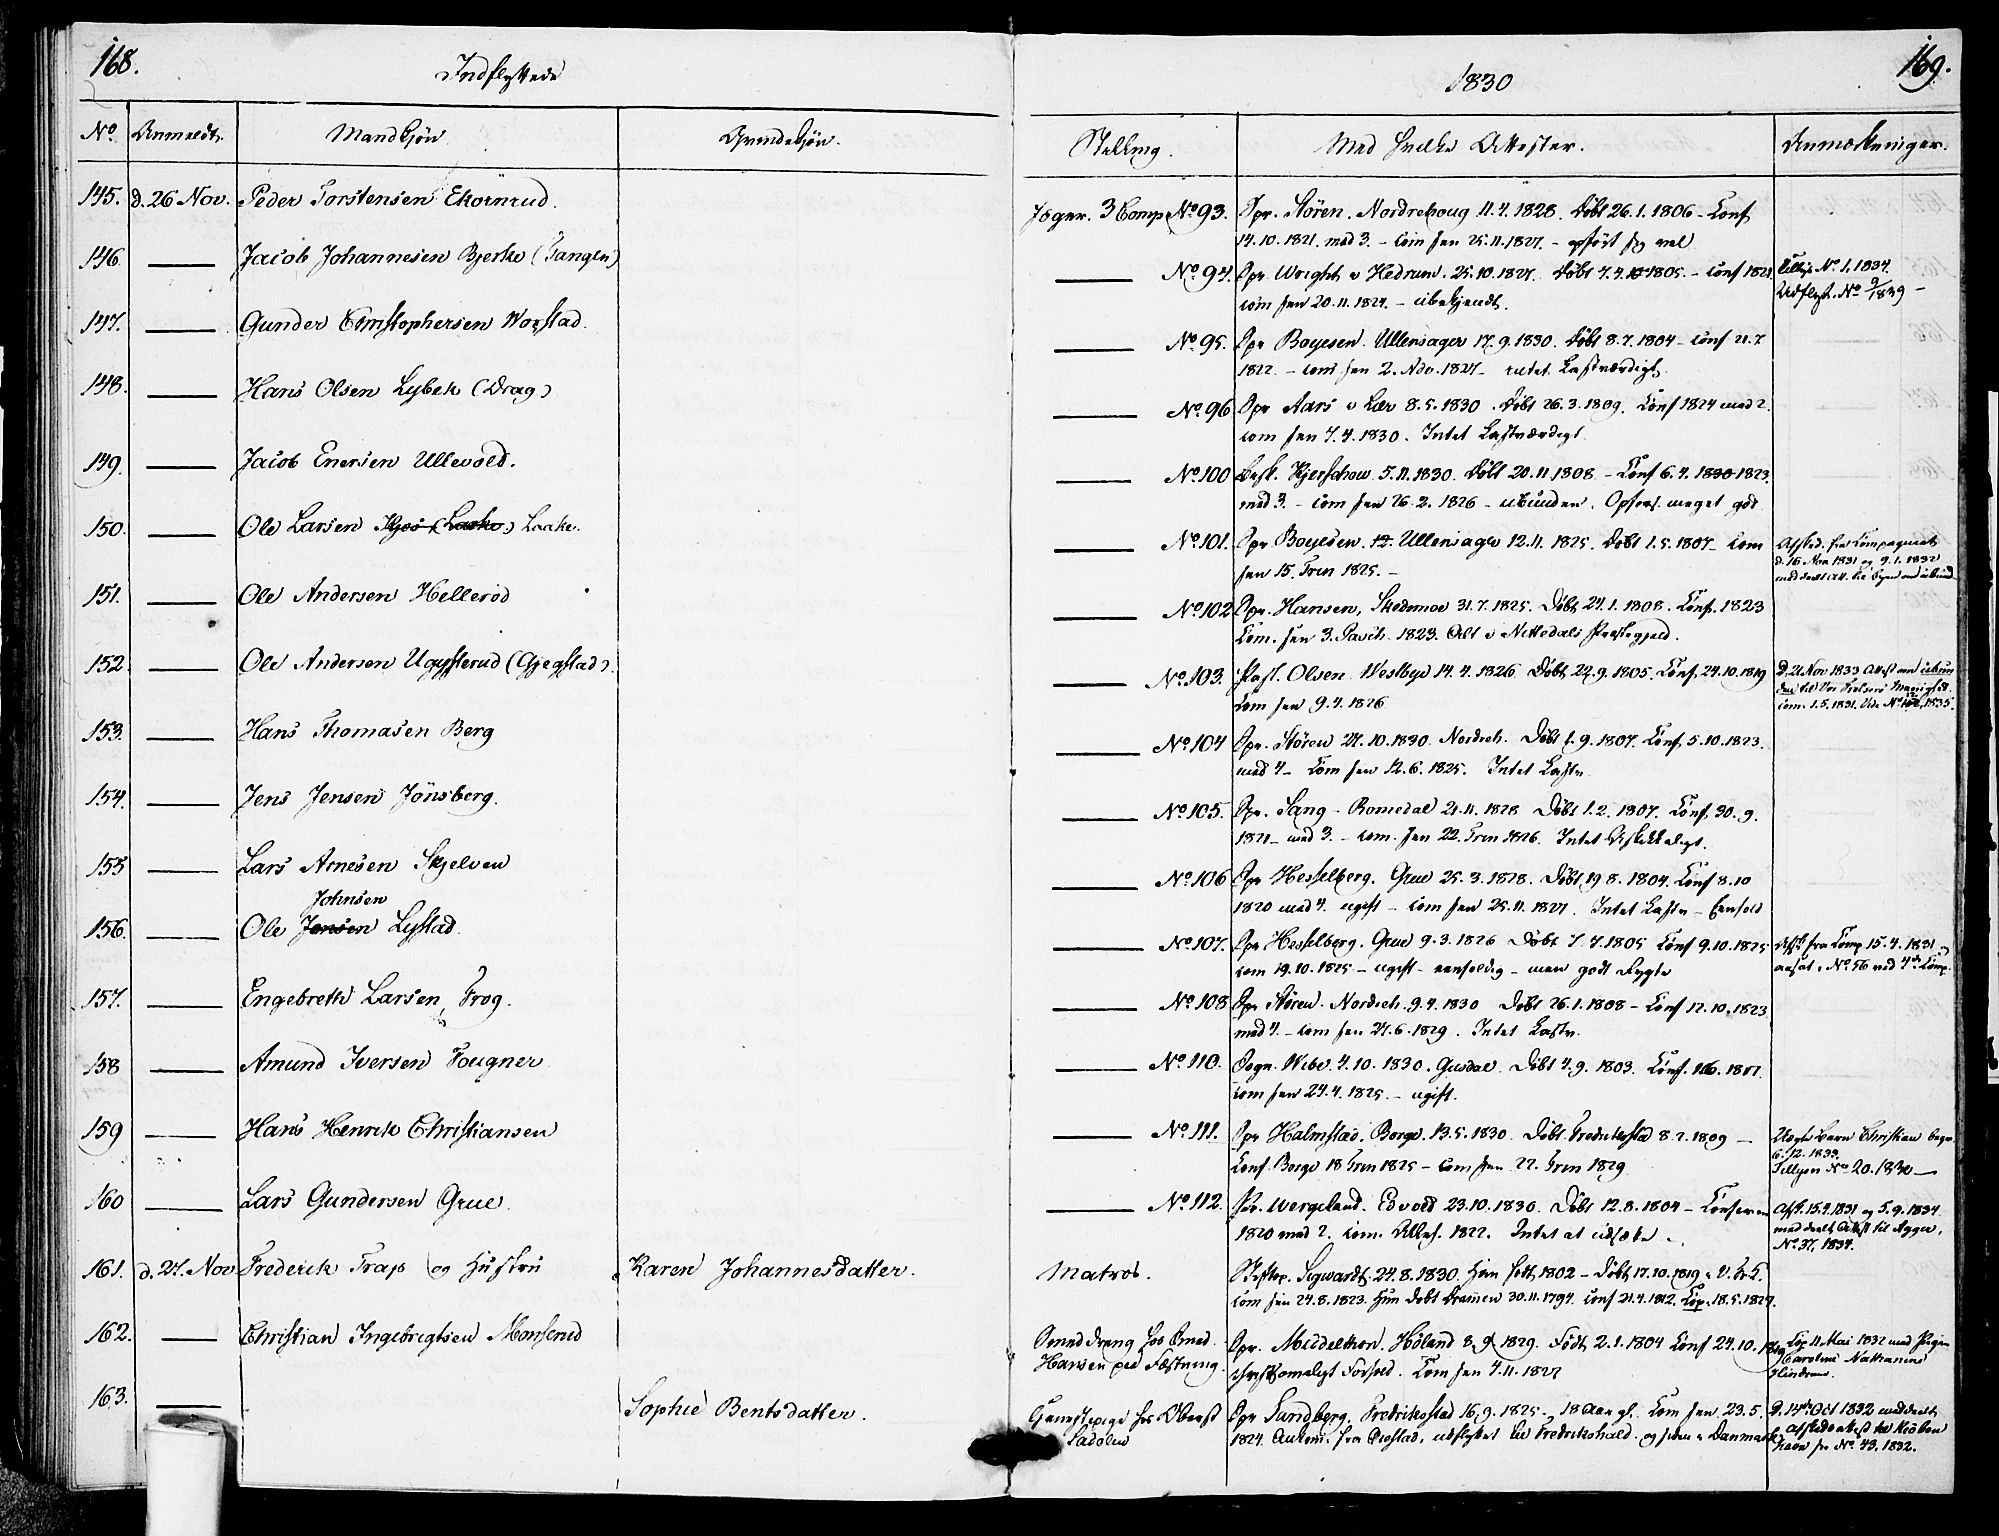 168.
Indflyttede
No. Anmeldt. Mandkjøn. Qvindekjøn.
145. d. 26 Nov. Peder Torstensen Ekornrud.
146 Jacob Johannesen Bjerke (Tangen)
147. Gunder Christophersen Wogstad.
148. Hans Olsen Lybek (Drag)
149. Jacob Enersen Ullevold.
150. Ole Larsen Laake.
151. Ole Andersen Hellerød
152 Ole Andersen (Gjegstad).
153. Hans Thomasen Berg
154. Jens Jensen Jönsberg.
155 Lars Arnesen Skjelven
Johnsen
156. Ole Jensen Lystad.
157. Engebreth Larsen Frog.
158 Amund Iversen Fougner
159 Hans Henrik Christiansen
160 Lars Gundersen Grue.
161. d. 27. Nov Frederik Trap og Hustru Karen Johannesdatter.
162. Christian Ingebrigtsen Monserud
163. Sophie Bentsdatter.
169.
1830
Stilling. Med hvilke Attester. Anmærkninger.
Jæger. 3 Comp No. 93. Spr. Stören. Nordrehoug 11.4.1828. Døbt 26.1.1806 - Conf
14.10.1821. med 3. - Com sen 25.11.1827. - opført sig vel
No. 94. Spr Wright v Hedrum. 25.10.1827. Døbt 7.4.1805. - Conf 1821
Com sen 20.11.1824. - ubekjendt.
No. 95. Spr Boyesen. Ullensager 17.9.1830. Døbt 8.7.1804 - Conf 21.7
1822. - Com sen 2. Adv. 1827 - intet Lastværdigt.
No. 96 Spr Aars v Lier 8.5.1830. Døbt 26.3.1809. Conf 1824 med 2.
Com sen 7.4.1830. Intet Lastværdigt.
No. 100 Kjerschow 5.11.1830. Døbt 20.11.1808 - Conf 6.4. 1823
med 3. - Com sen 26.2.1826 - ubunden. Opførs. meget god
No. 101. Spr Boyesen. Ullensager 12.11.1825. Døbt 1.5.1807 - Com
sen 15. Trin 1825. -
No. 102 Spr. Hansen, Skedsmoe 31.7.1825. Døbt 24.1.1808. Conf. 1823
Com. sen 3. Pasch. 1823. Alt i Nittedals Præstegjeld.
No. 103. Past. Olsen Westbye 14.4.1826 Døbt 22.9.1805. Conf. 24.10.1819
Com sen 9.4.1826
No. 104 Spr. Stören 27.10.1830. Nordreh. Døbt 1.9.1807. Conf. 5.10.1823.
med 4 - Com sen 12.6.1825. Intet Lastv.
No. 105. Spr. Sang - Romedal 21.11.1828 Døbt 1.2.1807. Conf. 30.9.
1821 - med 3. - Com. sen 22. Trin 1826. Intet Uskikkeligt.
No. 106 Spr Hesselberg. Grue 25.3.1828. Døbt 19.8.1804. Conf 8.10
1820 med 4. ugift - Com sen 25.11.1827. Intet Lastv -
No. 107. Spr Hesselberg. Grue 9.3.1826 Døbt 7.7.1805 Conf 9.10.1825
Com 19.10.1825 - ugift - eenfoldig - men godt Rygte
No. 108 Spr Stören. Nordreh. 9.4.1830 Døbt 26.1.1808 - Conf 12.10.1823
med 4. - Com sen 27.6.1829. Intet Lastv.
No. 110. Sogn. Wibe 4.10.1830. Gusdal. Døbt 4.9.1803. Conf.
Com sen 24.4.1825. - ugift.
No. 111. Spr Halmstad. Borge. 13.5.1830. Døbt Fredrikstad 8.2.1809 -
Conf. Borge 18 Trin 1825 - Com sen 22. Trin 1829
No. 112. Pr. Wergeland. Edvold 23.10.1830. Døbt 12.8.1804 - Conf
1820 med 2. Com. 1822. Intet at udsætte.
Matros. Biskop. Sigwardt. 24.8.1830. Han født 1802 - Døbt 17.10.1819
Com sen 24.8.1823. Hun døbt Drammen 30.11.1794. Conf 21.4.1812. Cop. 18.5.1827.
Smeddreng hos Smed Spr. Middelthon. Höland 8.9.1829. Født 2.1.1804 Conf 24.10.1819
Hansen paa Fæstning. christsømmeligt Forhold. Com sen 4.11.1827
Tjenestepige hos Oberst Spr Sundberg. Fredrikstad 16.9.1825 - 18 Aar gl. Com sen 23.5.
Sadolin 1824. udflyttet til Fredrikshald. og siden i Danmark
No. 1. 1834.
Udflyt. No 9/1839 -
Afsked. fra Compagniet
d. 16 Nov 1831 og 9.1.1832
D. 21 Nov 1833 Attest om ubun
den til Vor Frelsers Menighed.
Com. 1.5.1831.
Afsk. fra Comp 15.4.1831
ansat i No. 56 ved 4de Comp.
Uægte Barn Christian
6.12.1833.
Tillysn No. 20. 1830 -
Afsk. 15.4.1831 og 5.9.1834
meddeelt Attest til Agger.
No. 37, 1834.
Cop 11 Mai 1832 med Pigen
Caroline Nathanine
Hindrum.
D. 14de Oct 1832 meddeelt
Afskedsattest til Kiöben
havn sr No. 43. 1832.